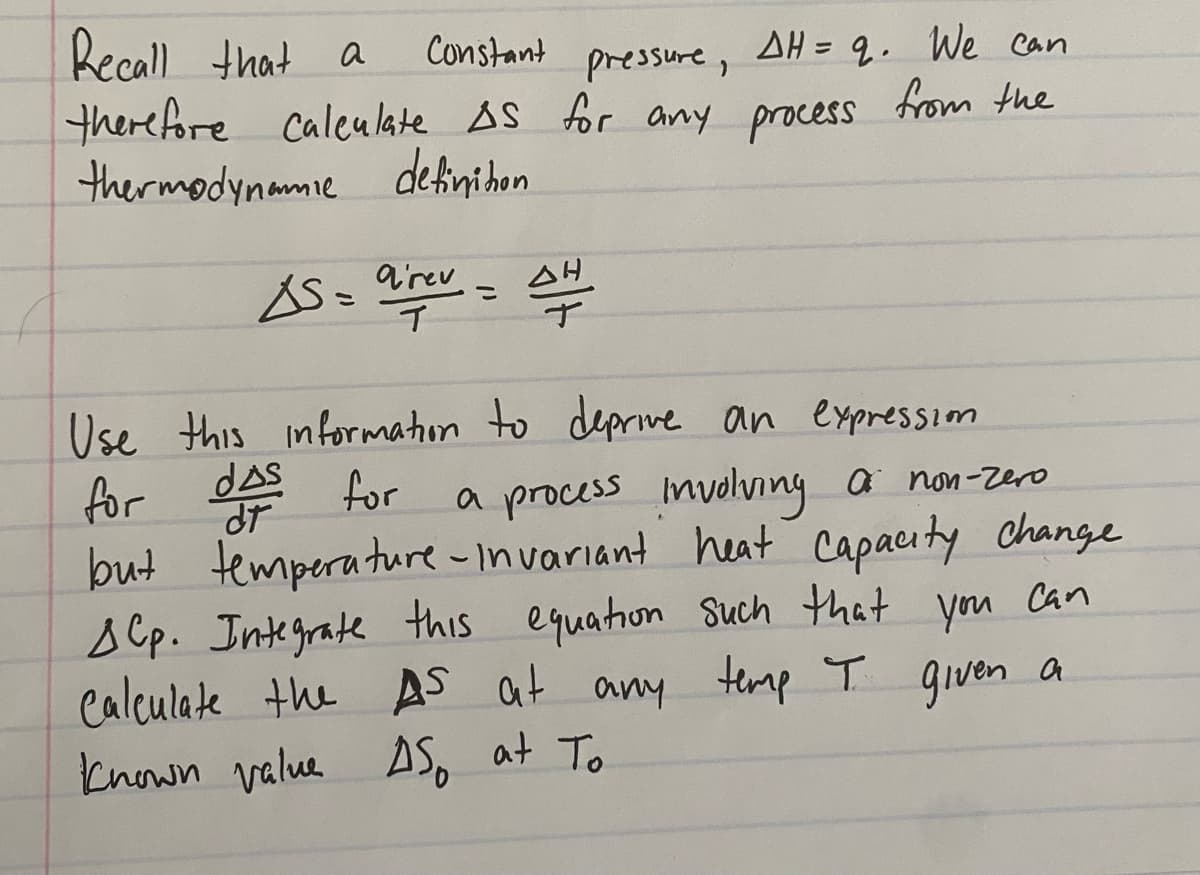 Recall that a Constant pressure, ΔH = q. We can
therefore calculate ΔS for any process from the
thermodynamic definition
ΔS = qrev/T = ΔH/T
Use this information to deprive an expression
for dΔS/dT for a process involving a non-zero
but temperature-invariant heat capacity change
ΔCp. Integrate this equation such that you can
calculate the ΔS at any temp T given a
known value ΔS₀ at T₀